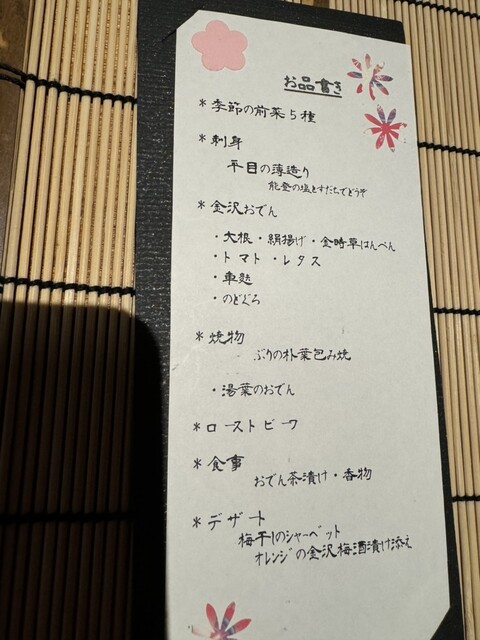 お品書き
* 季節の前菜5種
* 刺身
平目の薄造り
能登の塩とすだちでどうぞ
* 金沢おでん
・大根・絹揚げ・金時草はんぺん
・トマト・レタス
・車麩
・のどぐろ
* 焼物
ぶりの朴葉包み焼
・湯葉のおでん
* ローストビーフ
* 食事
おでん茶漬け・香物
* デザート
梅干しのシャーベット
オレンジの金沢梅酒漬け添え